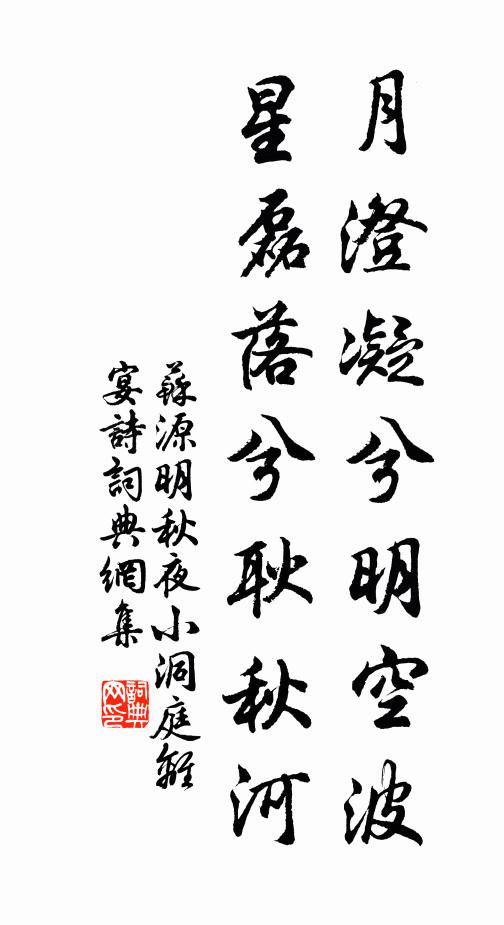 月澄凝兮明空波
星磊落兮耿秋河
蘇源明秋夜小洞庭離
宴詩詞典網集
詞典
网印